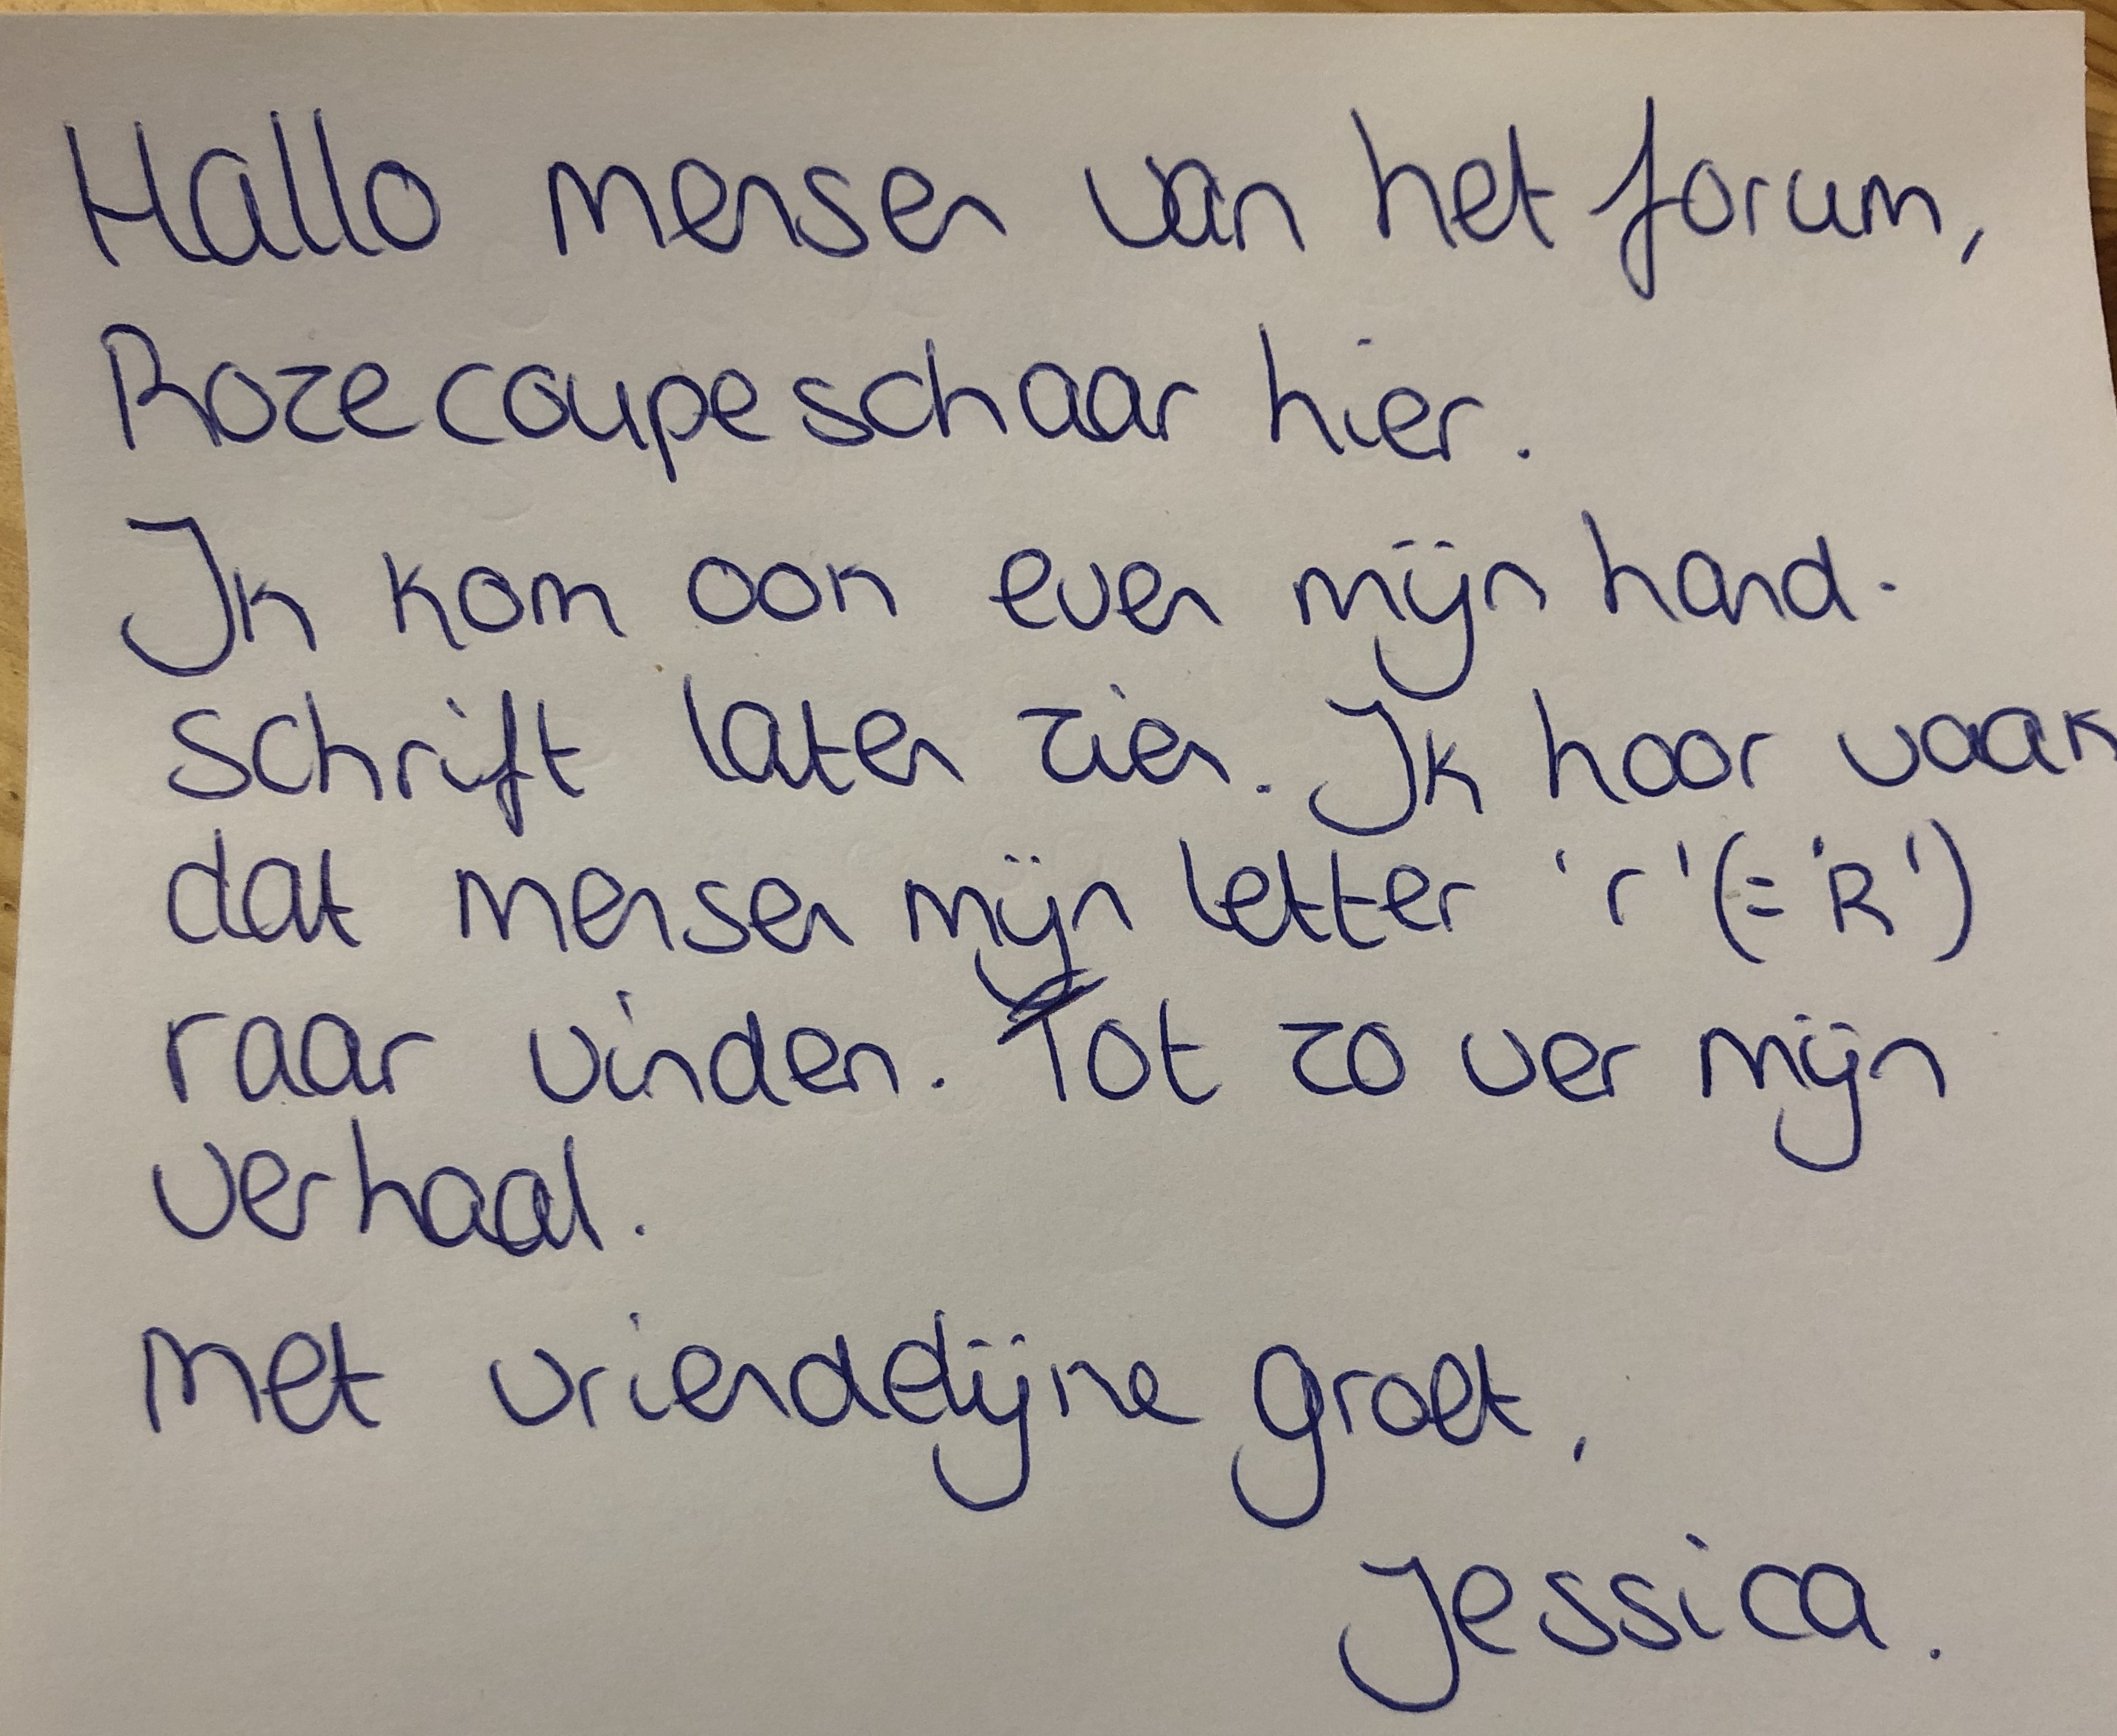 Hallo mensen van het forum,
Rozecoupeschaar hier.
Ik kom ook even mijn hand-
schrift laten zien. Ik hoor vaak
dat mensen mijn letter 'r' (='R')
raar vinden. Tot zo ver mijn
verhaal.
Met vriendelijke groet,
Jessica.